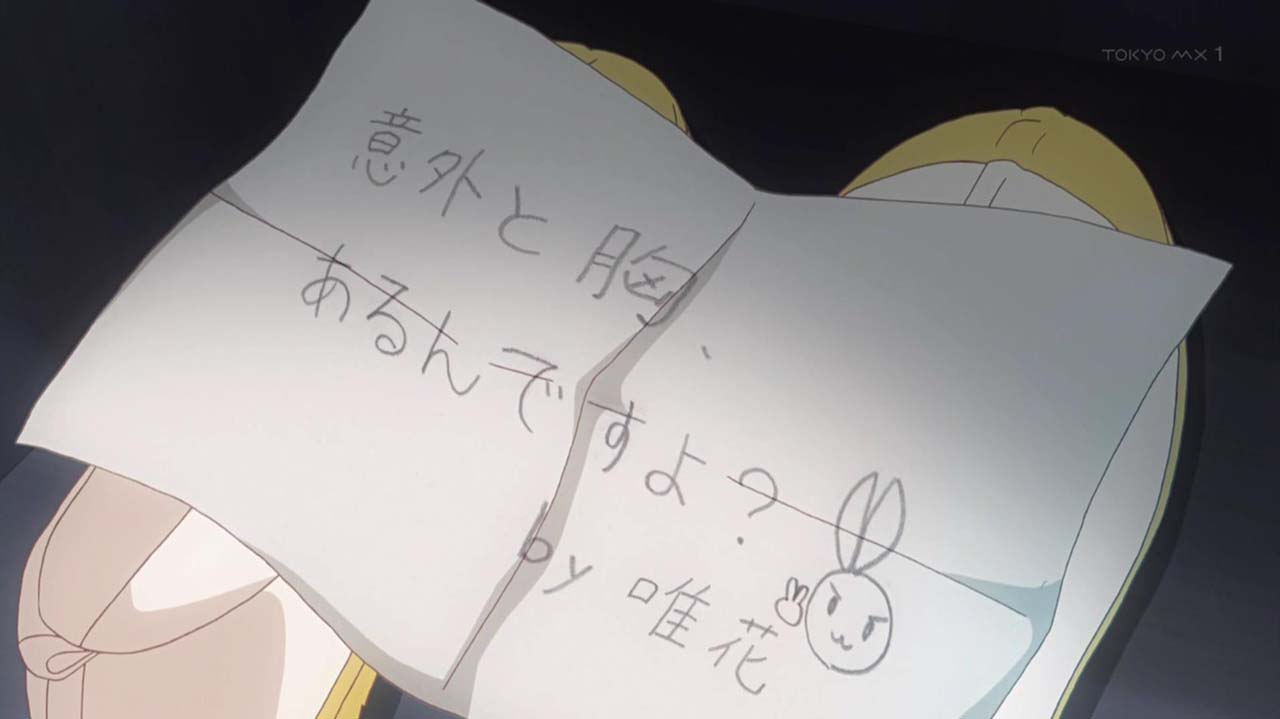 TOKYO MX 1
意外と胸、
あるんですよ?
by 唯花